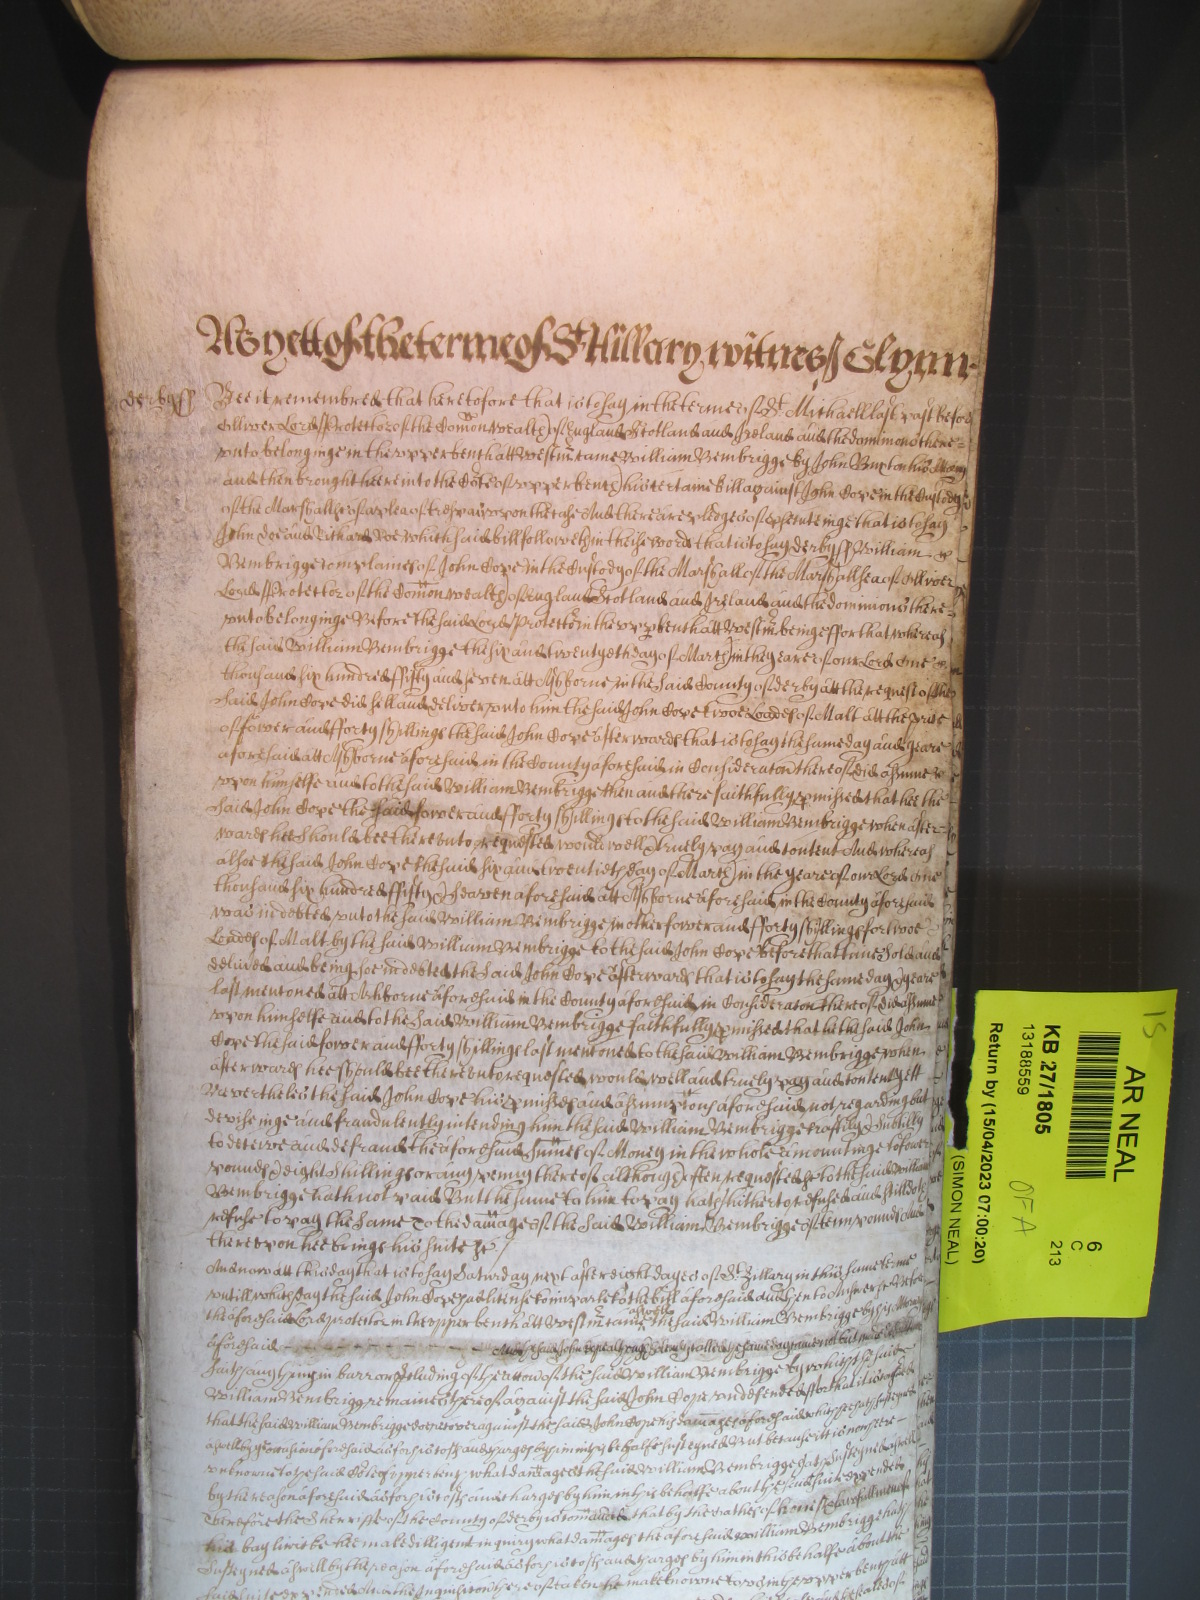 As yett of the terme of St Hillary witnes J Glynn
derby ss Bee it remembred that heretofore that is to say in the terme of St Michaell last past before
Olliver Lord Protector of the Comonwealth of England Scotland and Ireland and the dominions there=
unto belonginge in the upper bench att Westmr came William Bembrigge by John Buxton his Attorny
and then brought heere into the Cote of upper bench his certaine bill against John Cope in the Custody
of the Marshall &c of a plea of trespas upon the case And there are pledges of psecuteinge that is to say
John Doe and Richard Roe which said bill followeth in theise words that is to say derby ss William
Bembrigge complaines of John Cope in the Custody of the Marshall of the Marshallsea of Olliver
Lord Protector of the Comonwealth of England Scotland and Ireland and the dominions there=
unto belonginge Before the said Lord Protector in the upper bench att Westmr beinge ffor that whereas
the said William Bembrigge the six and twentyeth day of March in the yeare of our Lord one
thousand six hundred ffifty and seven att Ashborne in the said County of derby att the request of the
said John Cope did sell and deliver unto him the said John Cope twoe Loades of Malt att the price
of fower and fforty shillings the said John Cope afterwards that is to say the same day and yeare
aforesaid att Ashborne aforesaid in the County aforesaid in Consideraton thereof did assume
upon himselfe and to the said William Bembrigge then and there faithfully pmised that hee the
said John Cope the said fower and fforty shillings to the said William Bembrigge when after=
wards hee should bee thereunto requested would well & truely pay and content And whereas
alsoe the said John Cope the said six and twentieth day of March in the yeare of our Lord one
thousand six hundred ffifty & seaven aforesaid att Ashborne aforesaid in the County aforesaid
was indebted unto the said William Bembrigge in other fower and fforty shillings for twoe
Loades of Malt by the said William Bembrigge to the said John Cope before that time sold and
delived and being soe indebted the said John Cope afterwards that is to say the same day & yeare
last mentoned att Ashborne aforesaid in the County aforesaid in Consideraton thereof did assume
upon himselfe and to the said William Bembrigge faithfully pmised that he the said John
Cope the said fower and fforty shillings last mentoned to the said William Bembrigge when
afterwards hee should bee thereunto requested would well and truely pay and content Yett
Nevertheles the said John Cope his pmises and assumptons aforesaid not regarding but
deviseinge and fraudulently intending him the said William Bembrigge craftily & subtilly
to deceive and defraud the aforesaid sumes of Money in the whole amountinge to fower
pounds & eight shillings or any peny thereof although often requested &c to the said William
Bembrigge hath not paid But the same to him to pay hath hitherto refused and still doth
refuse to pay the same To the damage of the said William Bembrigge of tenn pounds And
thereupon hee brings his suite &c /
And now att this day that is to say Saturday next after eight dayes of St Hillary in this same terme
untill which day the said John Cope had license to imparle to the bill aforesaid and then to Answere &c Before
the aforesaid Lord protector in the upper bench att Westmr came aswell the said William Bembrigge by his Attorny
aforesaid
saith any thing in barr or pcluding of the accon of the said William Bembrigge by which the said
William Bembrigge remaines thereof against the said John Cope undefended ffor that it is considered
that the said William Bembrigge doe recover against the said John Cope his damages aforesaid which hee hath susteyned
aswell by reason aforesaid as for his costs and charges by him in this behalfe susteyned But because it is now here
unknowne to the said Cote of upper bench what damages the said William Bembrigge hath susteyned aswell
by the reason aforesaid as for his costs and charges by him in this behalfe about his said suite expended
Therefore the Sherriffe of the County of derby is comanded that by the oathes of honest & lawfull men of
his baylywick hee make diligent inquiry what damages the aforesaid William Bembrigge hath
susteyned aswell by the reason aforesaid as for his costs and charges by him in this behalfe about his
said suite expended And the Inquisition thereof taken he make knowne to us in the upper bench att
AR NEAL
KB 27/1805
13188559
Return by (15/04/2023 07:00:20)
(SIMON NEAL)
6
C
213
OFA
15